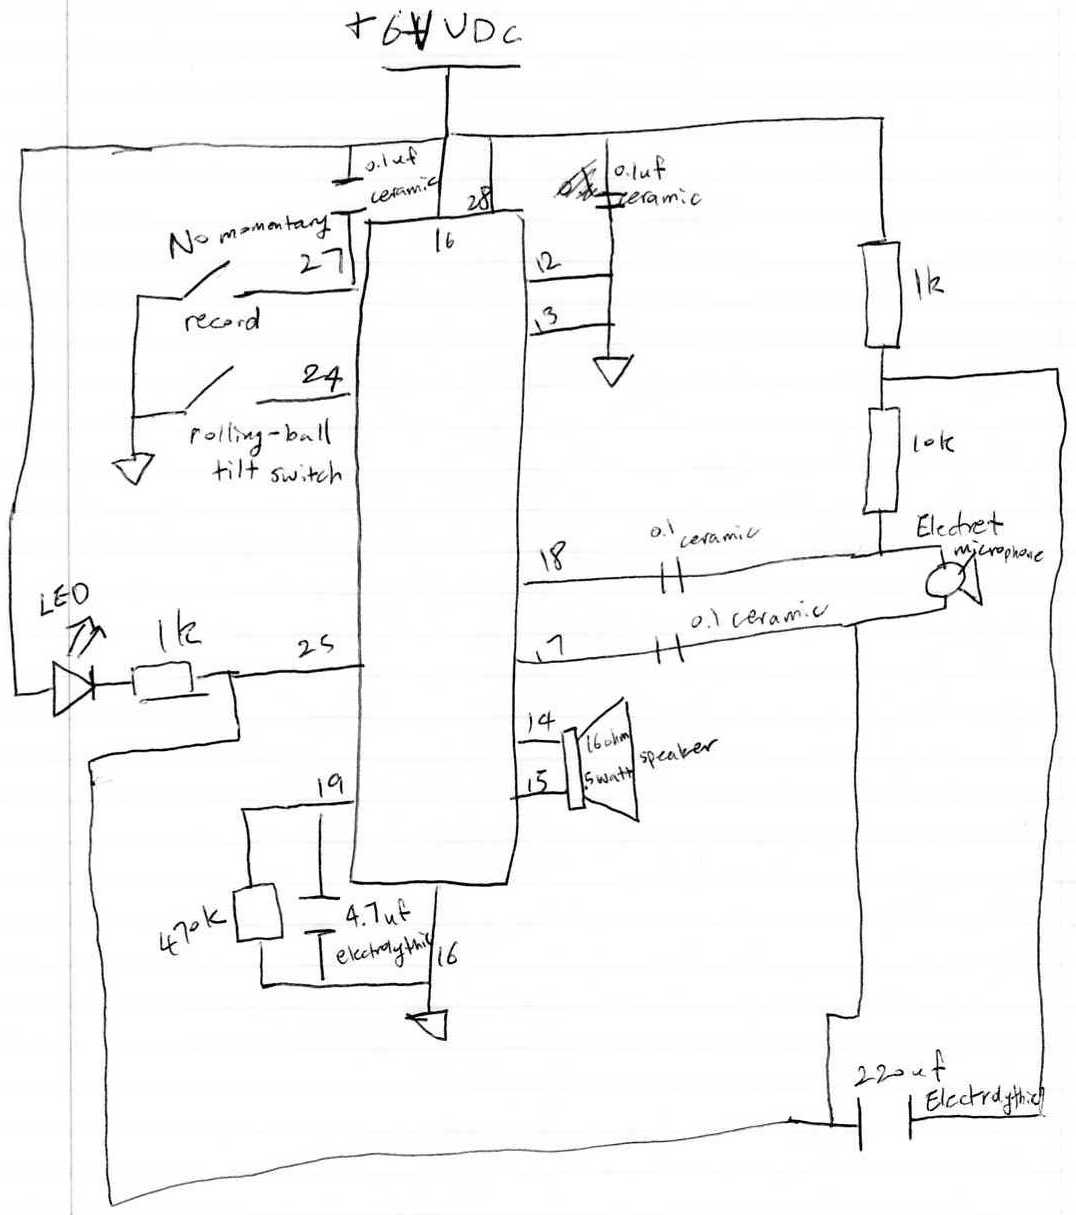 +6V VDC
0.1uf
ceramic
28
0.1uf
ceramic
No momentary
16
27
12
record
13
1k
24
rolling-ball
tilt switch
10k
Electret
microphone
0.1 ceramic
18
0.1 ceramic
17
LED
1k
25
14
16ohm
.5watt
speaker
15
19
470k
4.7uf
electrolythic
16
220uf
Electrolythic